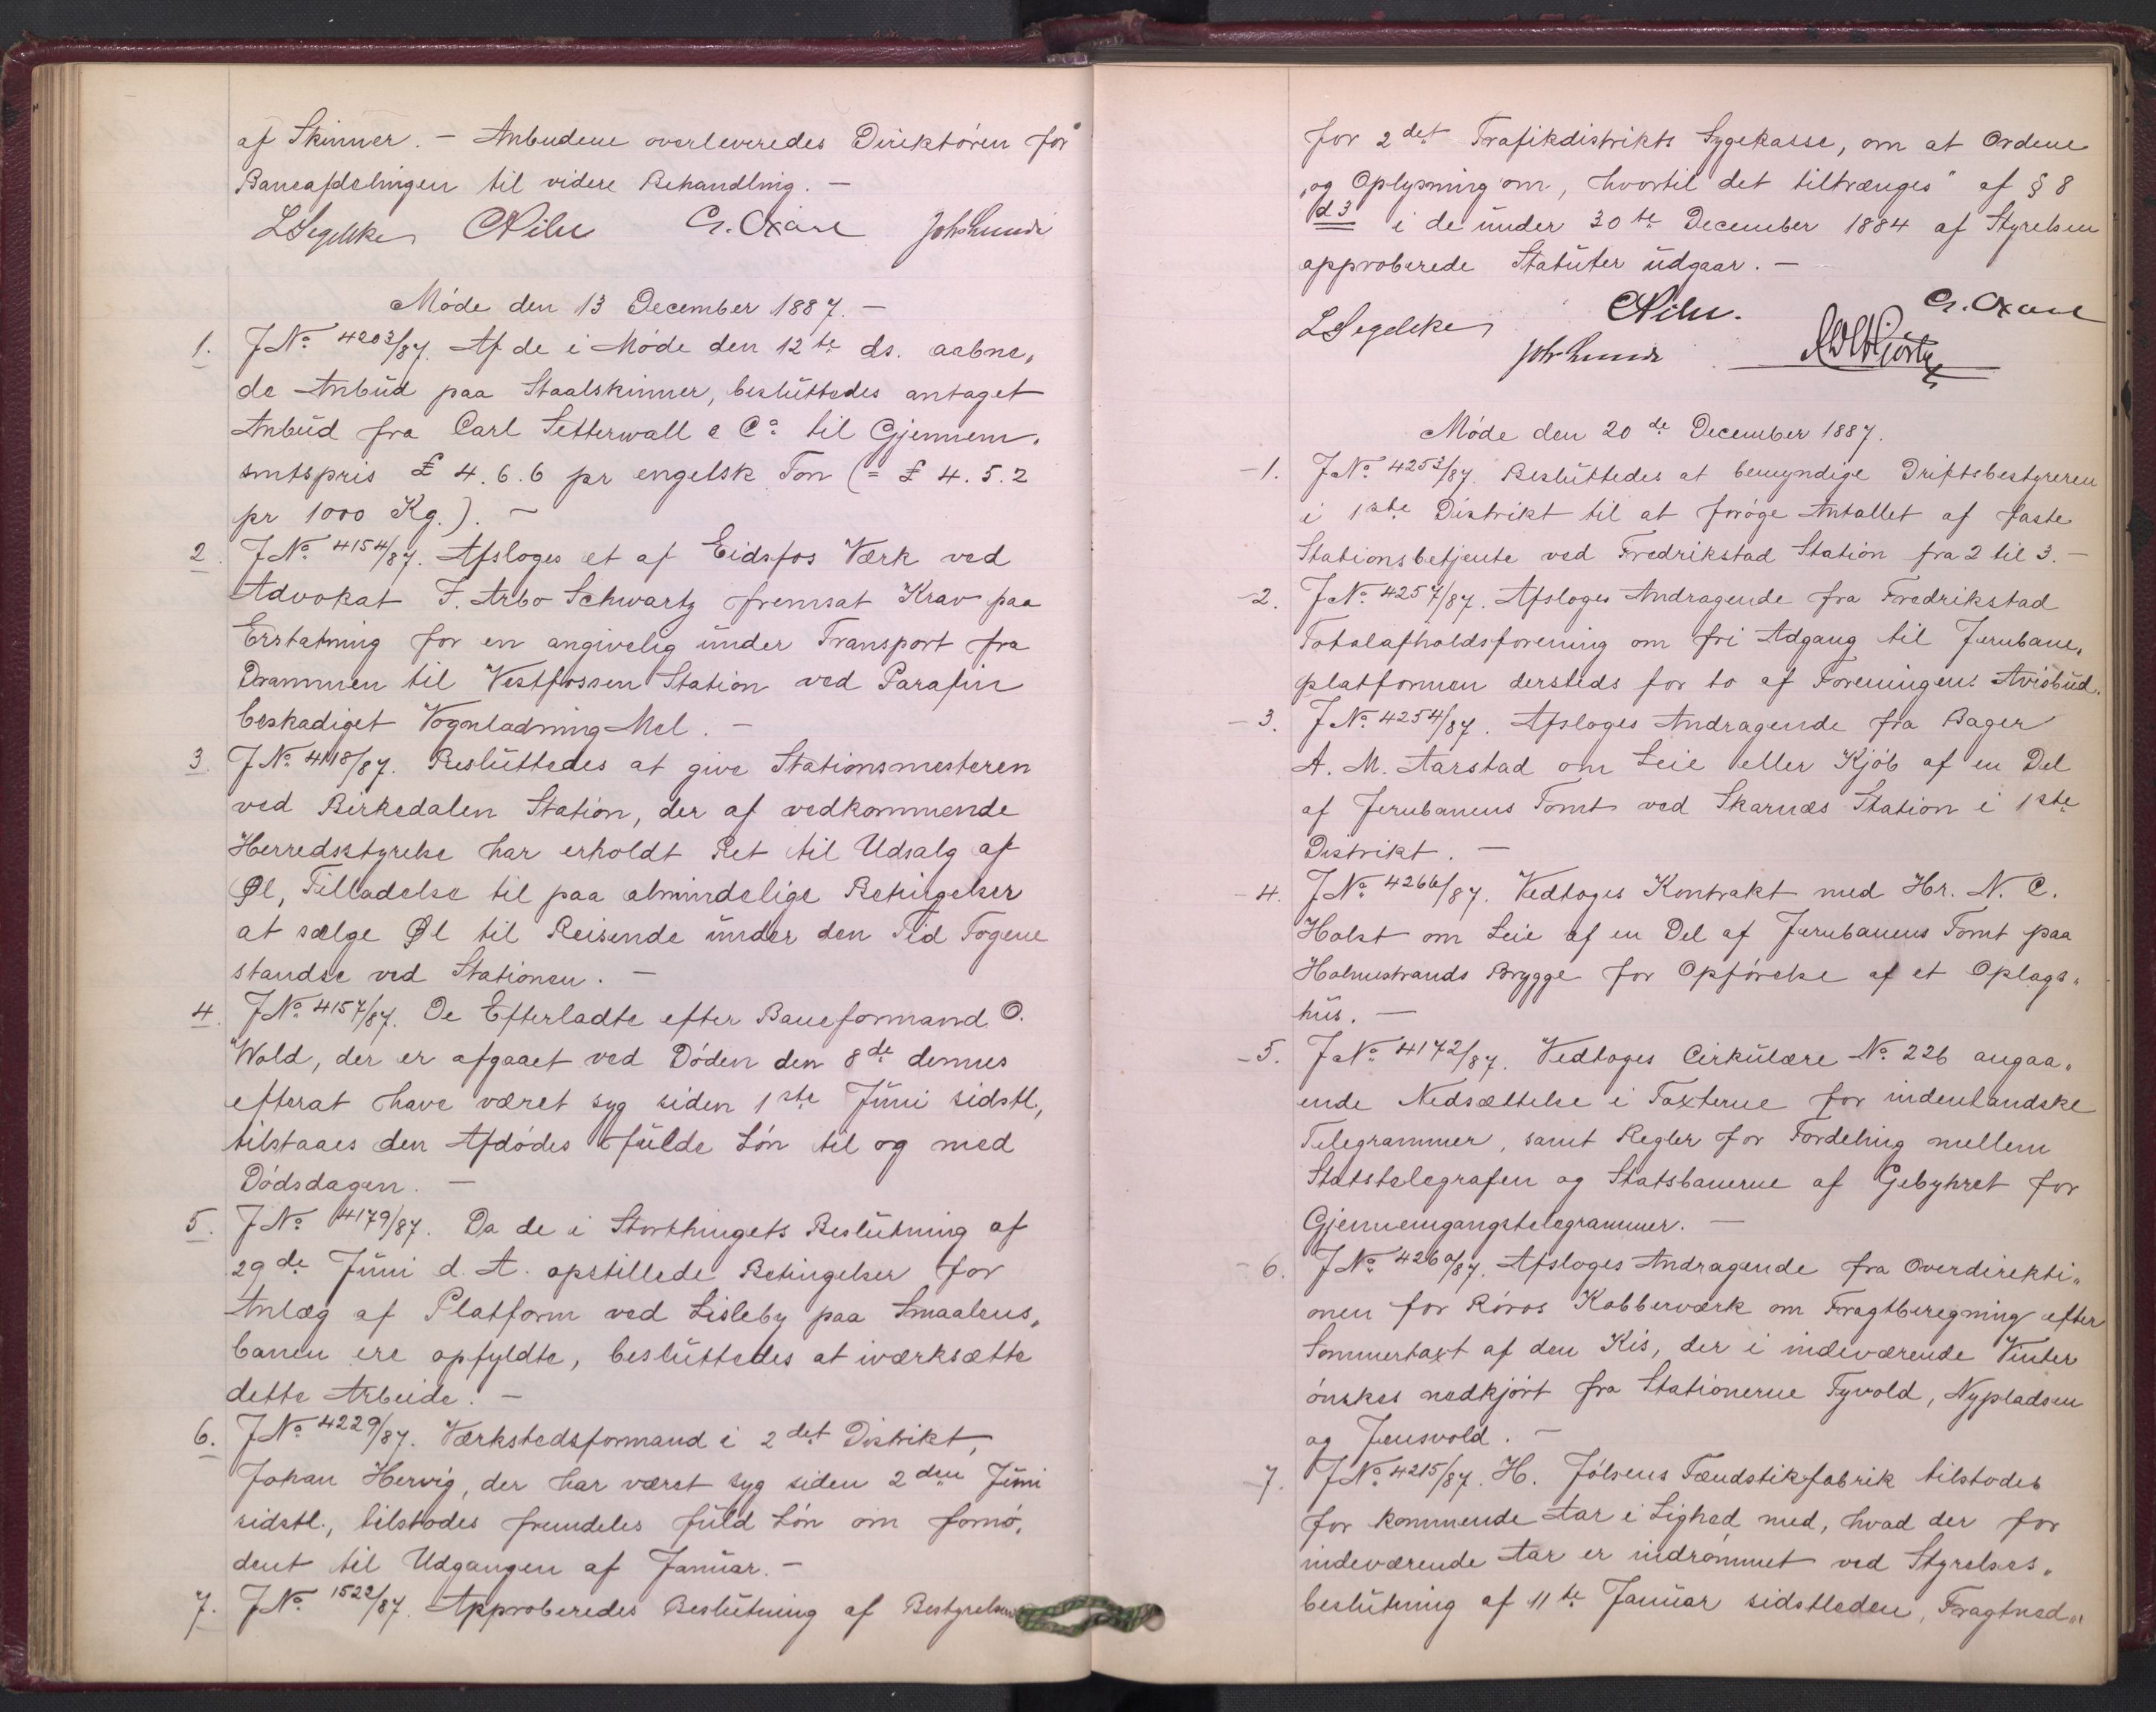 af Skinner. – Anbudene overleveredes Direktören for
Baneafdelingen til videre Behandling. –
LSegelcke CPihl G. Oxaal Joh Lunde
Möde den 13 December 1887. –
1. J№ 4203/87. Af de i Möde den 12te ds. aabne„
de Anbud paa Staalskinner, besluttedes antaget
Anbud fra Carl Setterwall & Co til Gjennem„
snitspris £ 4.6.6 pr engelsk Ton (= £ 4.5.2
pr 1000 Kg.). –
2. J№ 4154/87. Afsloges et af Eidsfos Værk ved
Advokat F. Arbo Schwartz fremsat Krav paa
Erstatning for en angivelig under Transport fra
Drammen til Vestfossen Station ved Parafin
beskadiget Vognladning Mel. –
3. J№ 4118/87. Besluttedes at give Stationsmesteren
ved Birkedalen Station, der af vedkommende
Herredsstyrelse har erholdt Ret til Udsalg af
Øl, Tilladelse til paa almindelige Betingelser
at sælge Øl til Reisende under den Tid Togene
standse ved Stationen. –
4. J№ 4157/87. De Efterladte efter Baneformand O.
Wold, der er afgaaet ved Döden den 8de dennes
efterat have været syg siden 1ste Juni sidstl.,
tilstaaes den Afdödes fulde Lön til og med
Dödsdagen. –
5. J№ 4179/87. Da de i Storthingets Beslutning af
29de Juni d. A. opstillede Betingelser for
Anlæg af Platform ved Lisleby paa Smaalens„
banen ere opfyldte, besluttedes at iværksætte
dette Arbeide. –
6. J№ 4229/87. Værkstedsformand i 2det Distrikt,
Johan Hervig, der har været syg siden 2den Juni
sidstl., tilstodes fremdeles fuld Lön om fornö„
dent til Udgangen af Januar. –
7. J№ 1522/87. Approberedes Beslutning af Bestyrelsen
for 2det Trafikdistrikts Sygekasse, om at Ordene
„og Oplysning om, hvortil det tiltrænges" af § 8
d 3 i de under 30te December 1884 af Styrelsen
approberede Statuter udgaar. –
LSegelcke CPihl. G. Oxaal
Joh Lunde
Möde den 20de December 1887.
– 1. J№ 4253/87. Besluttedes at bemyndige Driftsbestyreren
i 1ste Distrikt til at foröge Antallet af faste
Stationsbetjente ved Fredrikstad Station fra 2 til 3. –
– 2. J№ 4257/87. Afsloges Andragende fra Fredrikstad
Totalafholdsforening om fri Adgang til Jernbane„
platformen dersteds for to af Foreningens Avisbud.
– 3. J№ 4254/87. Afsloges Andragende fra Bager
A. M. Aarstad om Leie eller Kjöb af en Del
af Jernbanens Tomt ved Skarnæs Station i 1ste
Distrikt. –
– 4. J№ 4266/87. Vedtoges Kontrakt med Hr. N. C.
Holst om Leie af en Del af Jernbanens Tomt paa
Holmestrands Brygge for Opförelse af et Oplags„
hus. –
– 5. J№ 4172/87. Vedtoges Cirkulære № 226 angaa„
ende Nedsættelse i Taxterne for indenlandske
Telegrammer, samt Regler for Fordeling mellem
Statstelegrafen og Statsbanerne af Gebyhret for
Gjennemgangstelegrammer. –
– 6. J№ 4260/87. Afsloges Andragende fra Overdirekti„
onen for Röros Kobberværk om Fragtberegning efter
Sommertaxt af den Kis, der i indeværende Vinter
önskes nedkjört fra Stationerne Tyvold, Nypladsen
og Jensvold. –
– 7. J№ 4215/87. H. Jölsens Tændstikfabrik tilstodes
for kommende Aar i Lighed med, hvad der for
indeværende Aar er indrömmet ved Styrelses„
beslutning af 11te Januar sidstleden, Fragtned„